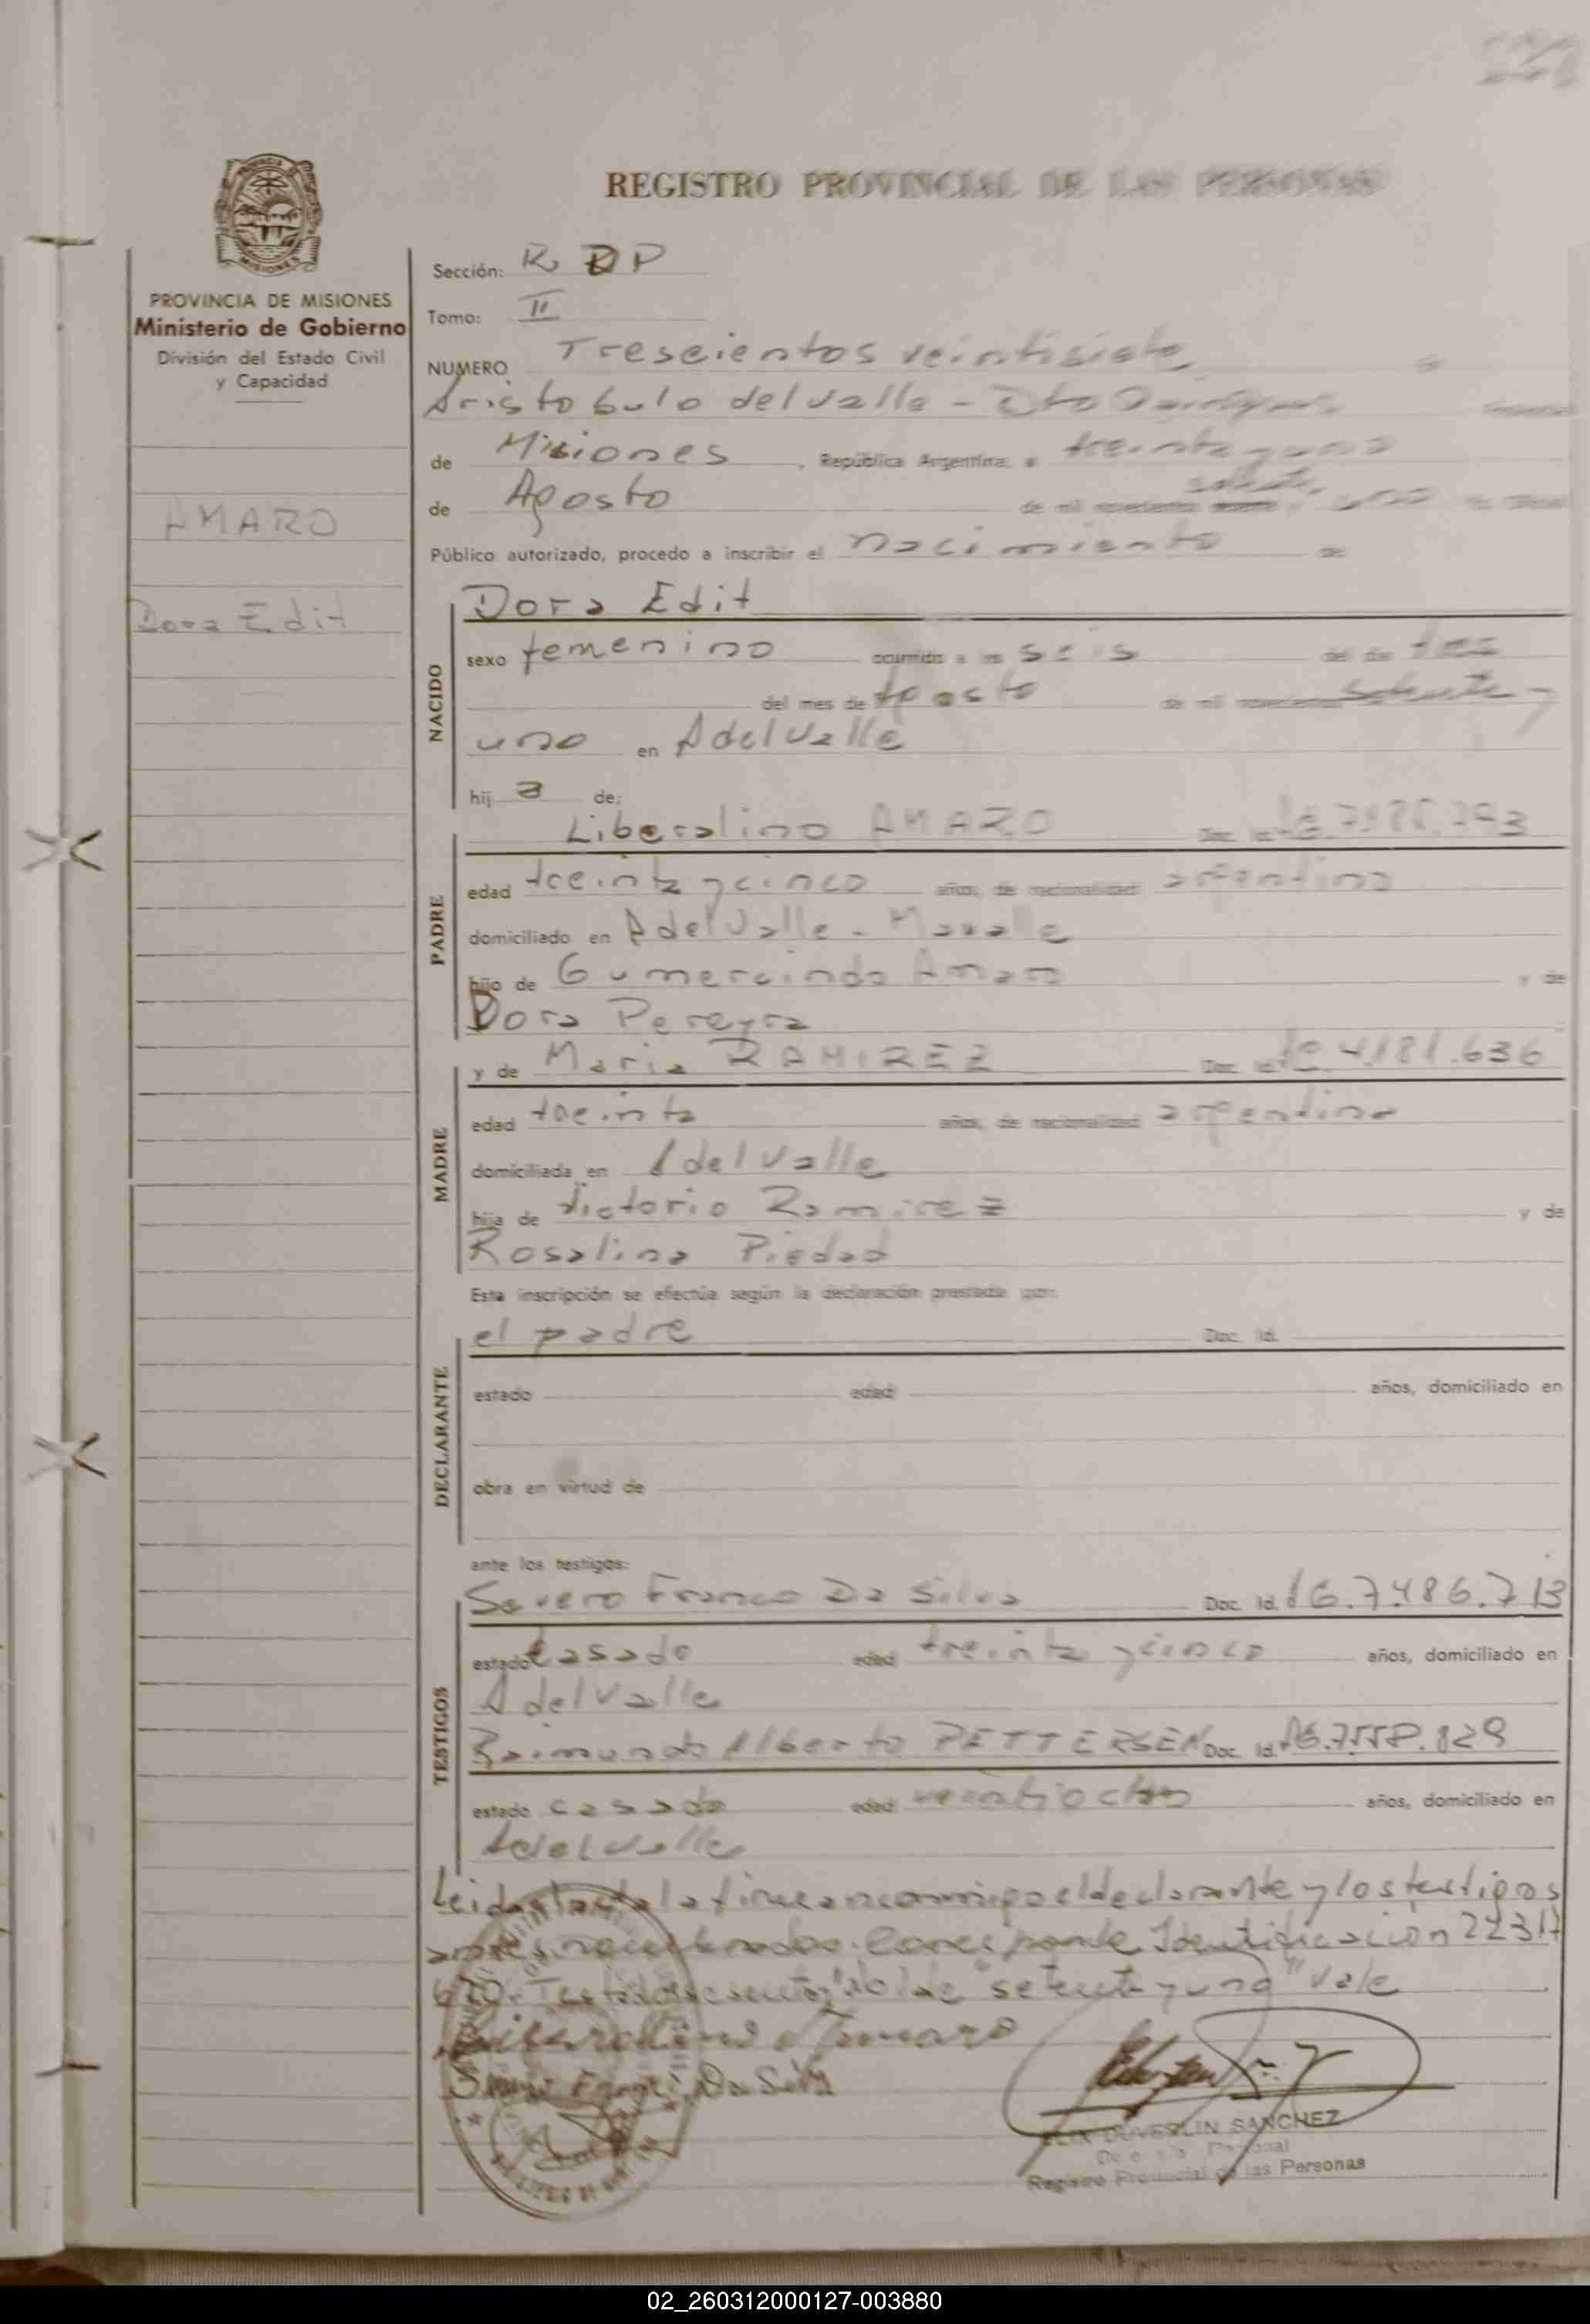 REGISTRO PROVINCIAL DE LAS PERSONAS
PROVINCIA DE MISIONES
Ministerio de Gobierno
División del Estado Civil
y Capacidad
AMARO
Dora Edit
Sección: R D P
Tomo: II
NUMERO Trescientos veintisiete
Aristobulo del Valle - Dto
de Misiones, República Argentina, a treinta y uno
de Agosto de mil novecientos setenta y uno
Público autorizado, procedo a inscribir el nacimiento de
NACIDO
Dora Edit
sexo femenino ocurrido a las seis del día tres
del mes de Agosto de mil novecientos setenta y
uno en A del Valle
hij a de:
PADRE
Liberalino AMARO Doc. Id.
edad treinta y cinco años, de nacionalidad argentino
domiciliado en A del Valle -
hijo de Gumercindo Amaro y de
Dora Pereyra
MADRE
y de Maria RAMIREZ Doc. Id. 4.181.636
edad treinta años, de nacionalidad argentina
domiciliada en A del Valle
hija de Victorio Ramirez y de
Rosalina Piedad
Esta inscripción se efectúa según la declaración prestada por:
DECLARANTE
el padre Doc. Id.
estado edad años, domiciliado en
obra en virtud de
ante los testigos:
TESTIGOS
Severo Franco Da Silva Doc. Id. 7.486.713
estado casado edad treinta y cinco años, domiciliado en
A del Valle
Raimundo Alberto PETTERSEN Doc. Id.
estado casado edad veintiocho años, domiciliado en
A del Valle
Leida el acta la firman conmigo el declarante y los testigos
antes nombrados. Corresponde Identificación 2231
"setenta y uno" Vale
Liberalino Amaro
Da Silva
DUVERLIN SANCHEZ
Registro Provincial de las Personas
02_260312000127-003880